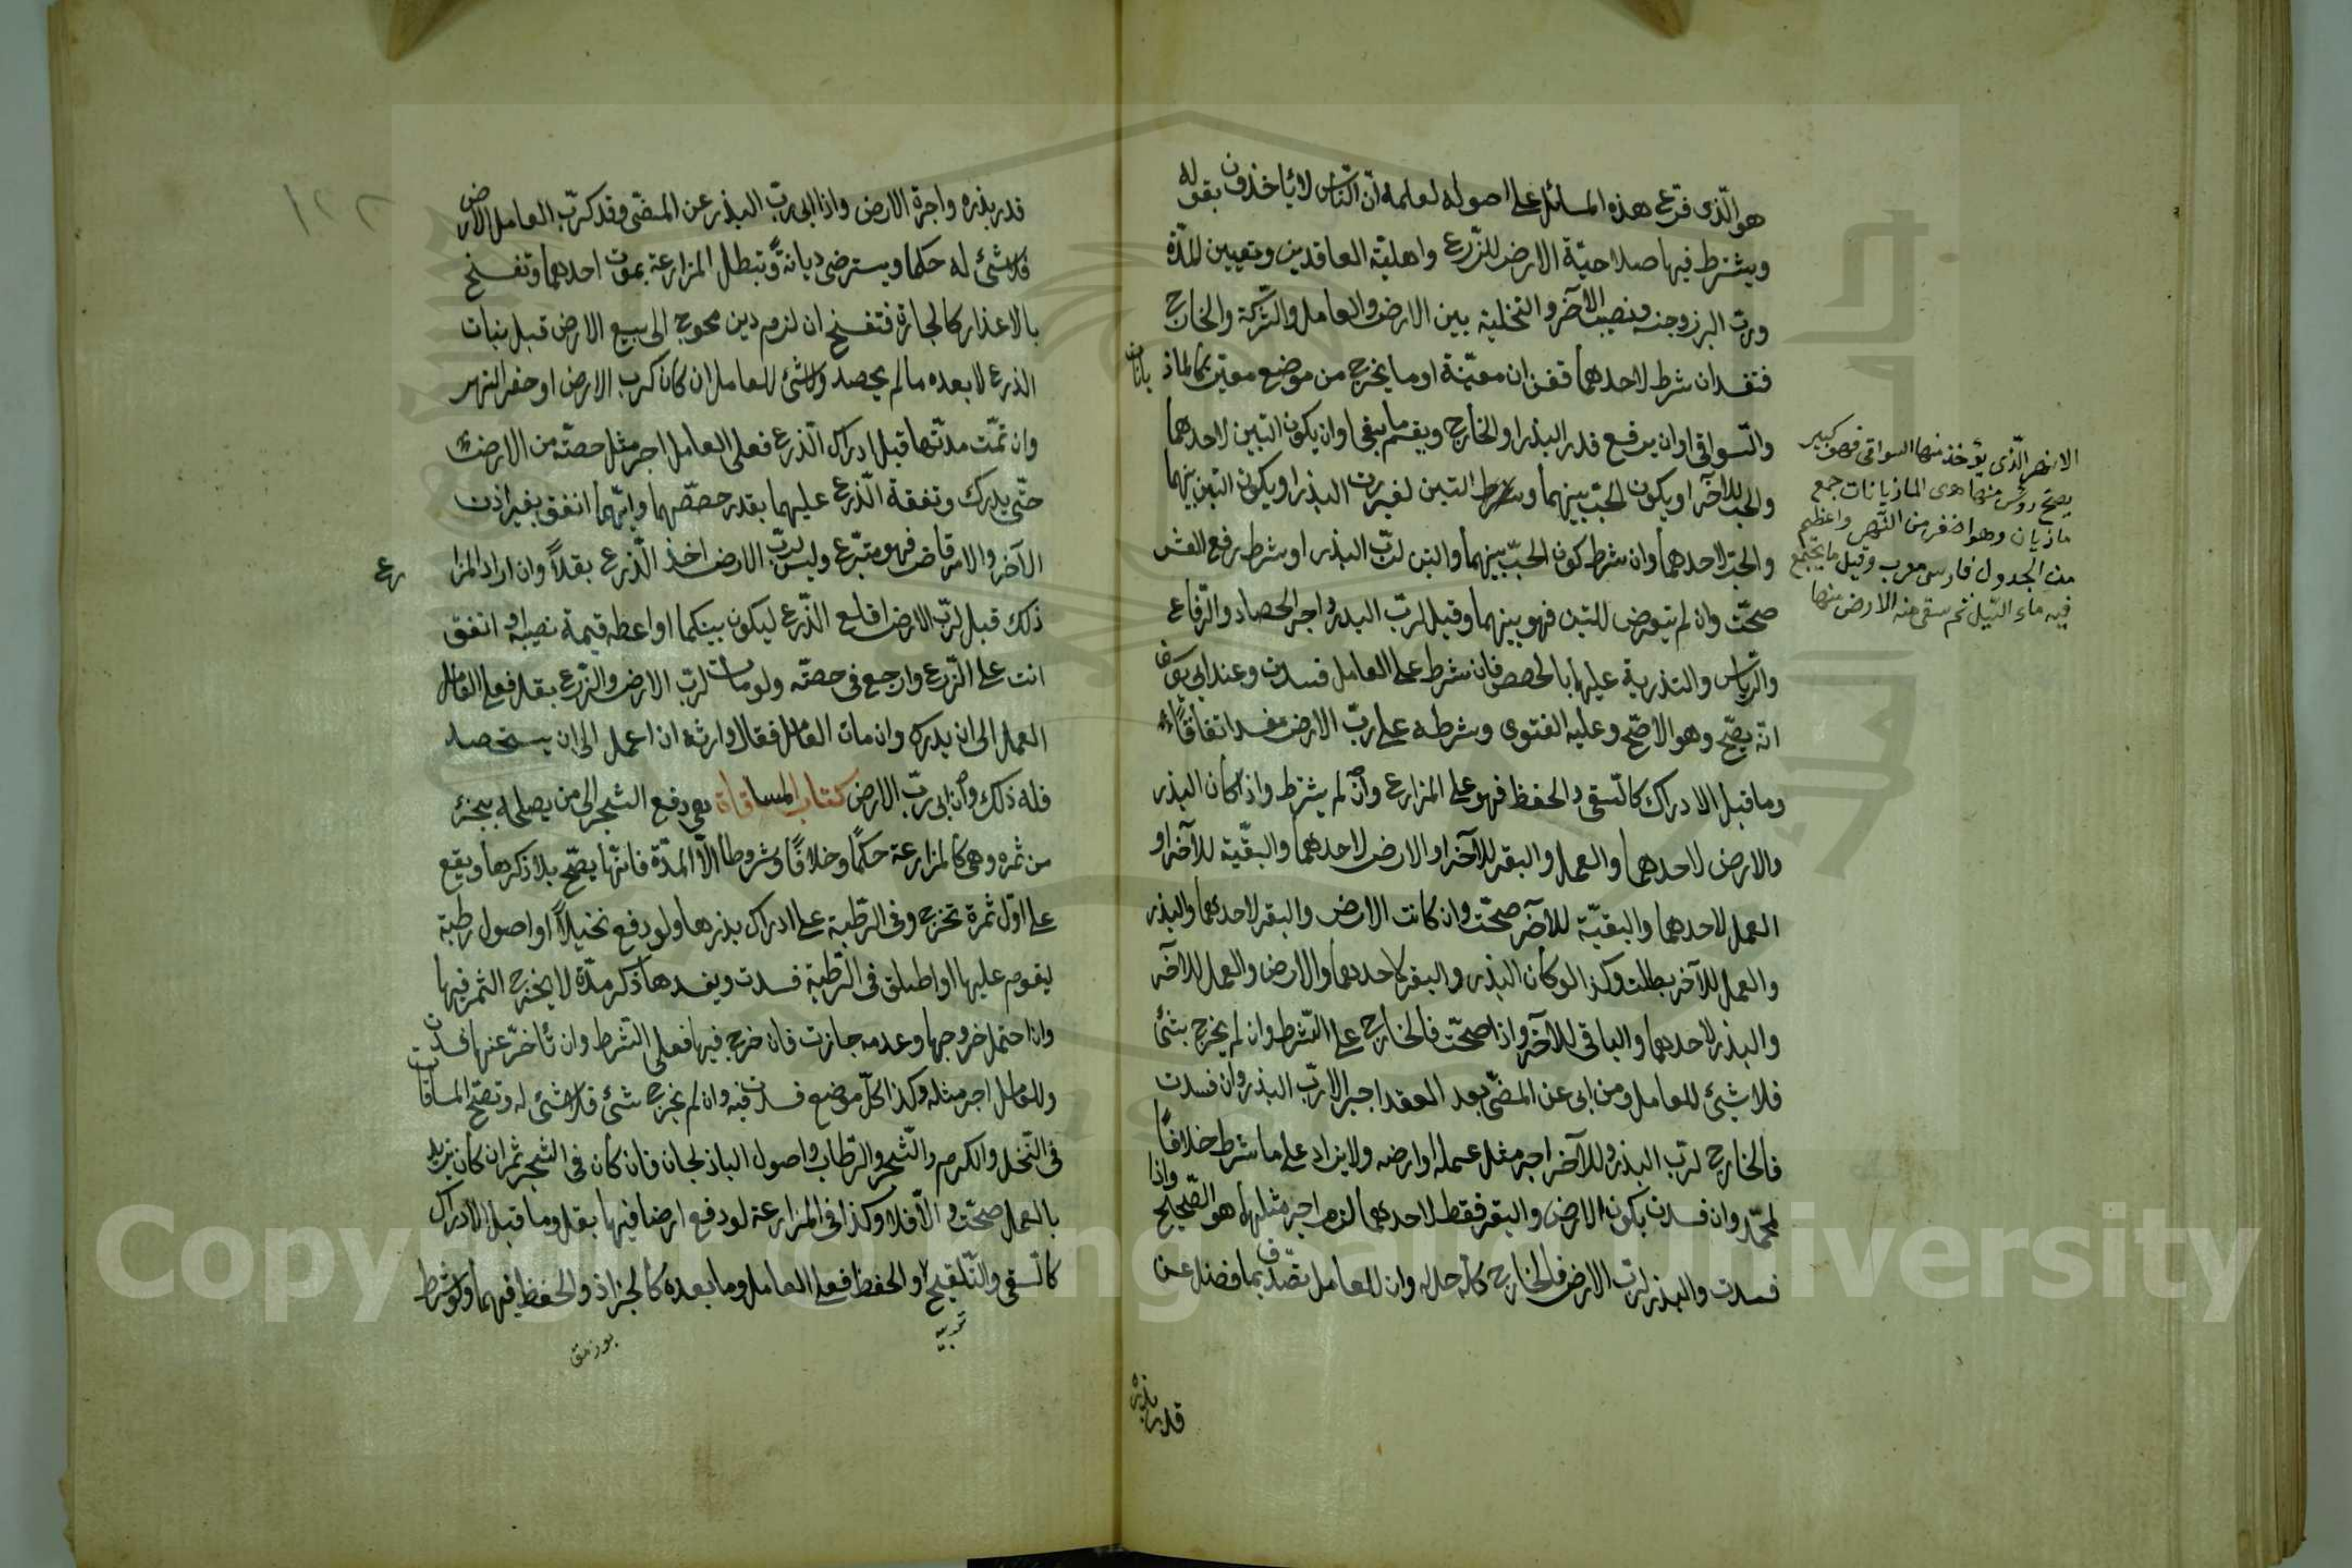 هو الّذى فرّع هذه المسائل على اصوله لعلمه انّ النّاس لا يأخذون بقوله
ويشترط فيها صلاحيّة الارض للزّرع واهليّة العاقدين وتعيين المدّة
وربّ البزر وجنسه ونصيب الآخر والتخلية بين الارض والعامل والشّركة والخارج
فتفسد ان شرط لاحدهما قفزان معيّنة او ما يخرج من موضع معيّن كالماذيانات
والسّواقى او ان يرفع قدر البذر او الخارج ويقسم ما يبقى او ان يكون التبن لاحدهما
والحبّ للآخر او يكون الحبّ بينهما وشرط التبن لغير ربّ البذر او يكون التبن بينهما
والحبّ لاحدهما وان شرط كون الحبّ بينهما والتبن لربّ البذر او شرط رفع العشر
صحّت وان لم يتعرض للتبن فهو بينهما وقيل لربّ البذر واجر الحصاد والرّفاع
والدّياس والتذرية عليهما بالحصص فان شرط على العامل فسدت وعند ابى يوسف
انّه يصحّ وهو الاصحّ وعليه الفتوى وشرطه على ربّ الارض مفسد اتفاقًا
وما قبل الادراك كالسّقى والحفظ فهو على المزارع وان لم يشترط واذا كان البذر
والارض لاحدهما والعمل والبقر للآخر او الارض لاحدهما والبقيّة للآخر او
العمل لاحدهما والبقيّة للآخر صحّت وان كانت الارض والبقر لاحدهما والبذر
والعمل للآخر بطلت وكذا لو كان البذر والبقر لاحدهما والارض والعمل للآخر
والبذر لاحدهما والباقى للآخر واذا صحّت فالخارج على الشّرط وان لم يخرج شئ
فلا شئ للعامل ومن ابى عن المضىّ بعد العقد اجبر الا ربّ البذر وان فسدت
فالخارج لربّ البذر وللآخر اجر مثل عمله او ارضه ولا يزاد على ما شرط خلافًا
لمحمّد وان فسدت بكون الارض والبقر فقط لاحدهما لزم اجر مثلهما هو الصّحيح واذا
فسدت والبذر لربّ الارض فالخارج كلّه حل له وان للعامل تصدّق بما فضل عن
قدر بذره
الانهر الّذى يؤخذ منها السواقى فهو كبير
يصحّ رؤس منها هى الماذيانات جمع
ماذيان وهو اصغر من النّهر واعظم
من الجدول فارسى معرب وقيل ما يجتمع
فيه ماء السّيل ثم سقى منه الارض منها
١٢٢
قدر بذره واجرة الارض واذا ابى ربّ البذر عن المضىّ وقد كرب العامل الارض
فلا شئ له حكما ويسترضى ديانةً وتبطل المزارعة بموت احدهما وتفسخ
بالاعذار كالاجارة فتفسخ ان لزم دين محوج الى بيع الارض قبل نبات
الذرع لا بعده ما لم يحصد ولا شئ للعامل ان كان كرب الارض او حفر النهر
وان تمّت مدّتها قبل ادراك الذرع فعلى العامل اجر مثل حصّته من الارض
حتّى يدرك ونفقة الذرع عليهما بقدر حصصهما وايّهما انفق بغير اذن
الآخر والامر قاض فهو متبرّع وليس لربّ الارض اخذ الذرع بقلاً وان اراد المزارع
ذلك قيل لربّ الارض اقلع الذرع ليكون بينكما او اعطه قيمة نصيبه او انفق
انت على الزّرع وارجع فى حصته ولو مات ربّ الارض والزّرع بقل فعلى العامل
العمل الى ان يدرك وان مات العامل فقال وارثه ان اعمل الى ان يستحصد
فله ذلك وان ابى ربّ الارض كتاب المساقاة هى دفع الشجر الى من يصلحه بجزئ
من ثمره وهى كالمزارعة حكمًا وخلافًا وشروطا الّا المدّة فانّها يصحّ بلا ذكرها ويقع
على اوّل ثمرة تخرج وفى الرّطبة على ادراك بذرها ولو دفع نخيلاً او اصول رطبة
ليقوم عليها او اطلق فى الرّطبة فسدت ويفسدها ذكر مدّة لا يخرج الثمر فيها
وان احتمل خروجها وعدمه جازت فان خرج فيها فعلى الشرط وان تأخّر عنها فسدت
وللعامل اجر مثله وكذا كلّ موضع فسدت فيه وان لم يخرج شئ فلا شئ له وتصحّ المساقات
فى النّخل والكرم والشّجر والرّطاب واصول الباذنجان فان كان فى الشجر ثمر ان كان يزيد
بالعمل صحّت والّا فلا وكذا فى المزارعة لو دفع ارضا فيها بقل وما قبل الادراك
كالسّقى والتّلقيح والحفظ فعلى العامل وما بعده كالجزاز والحفظ فعليهما ولو شرط
Copyright © King Saud University